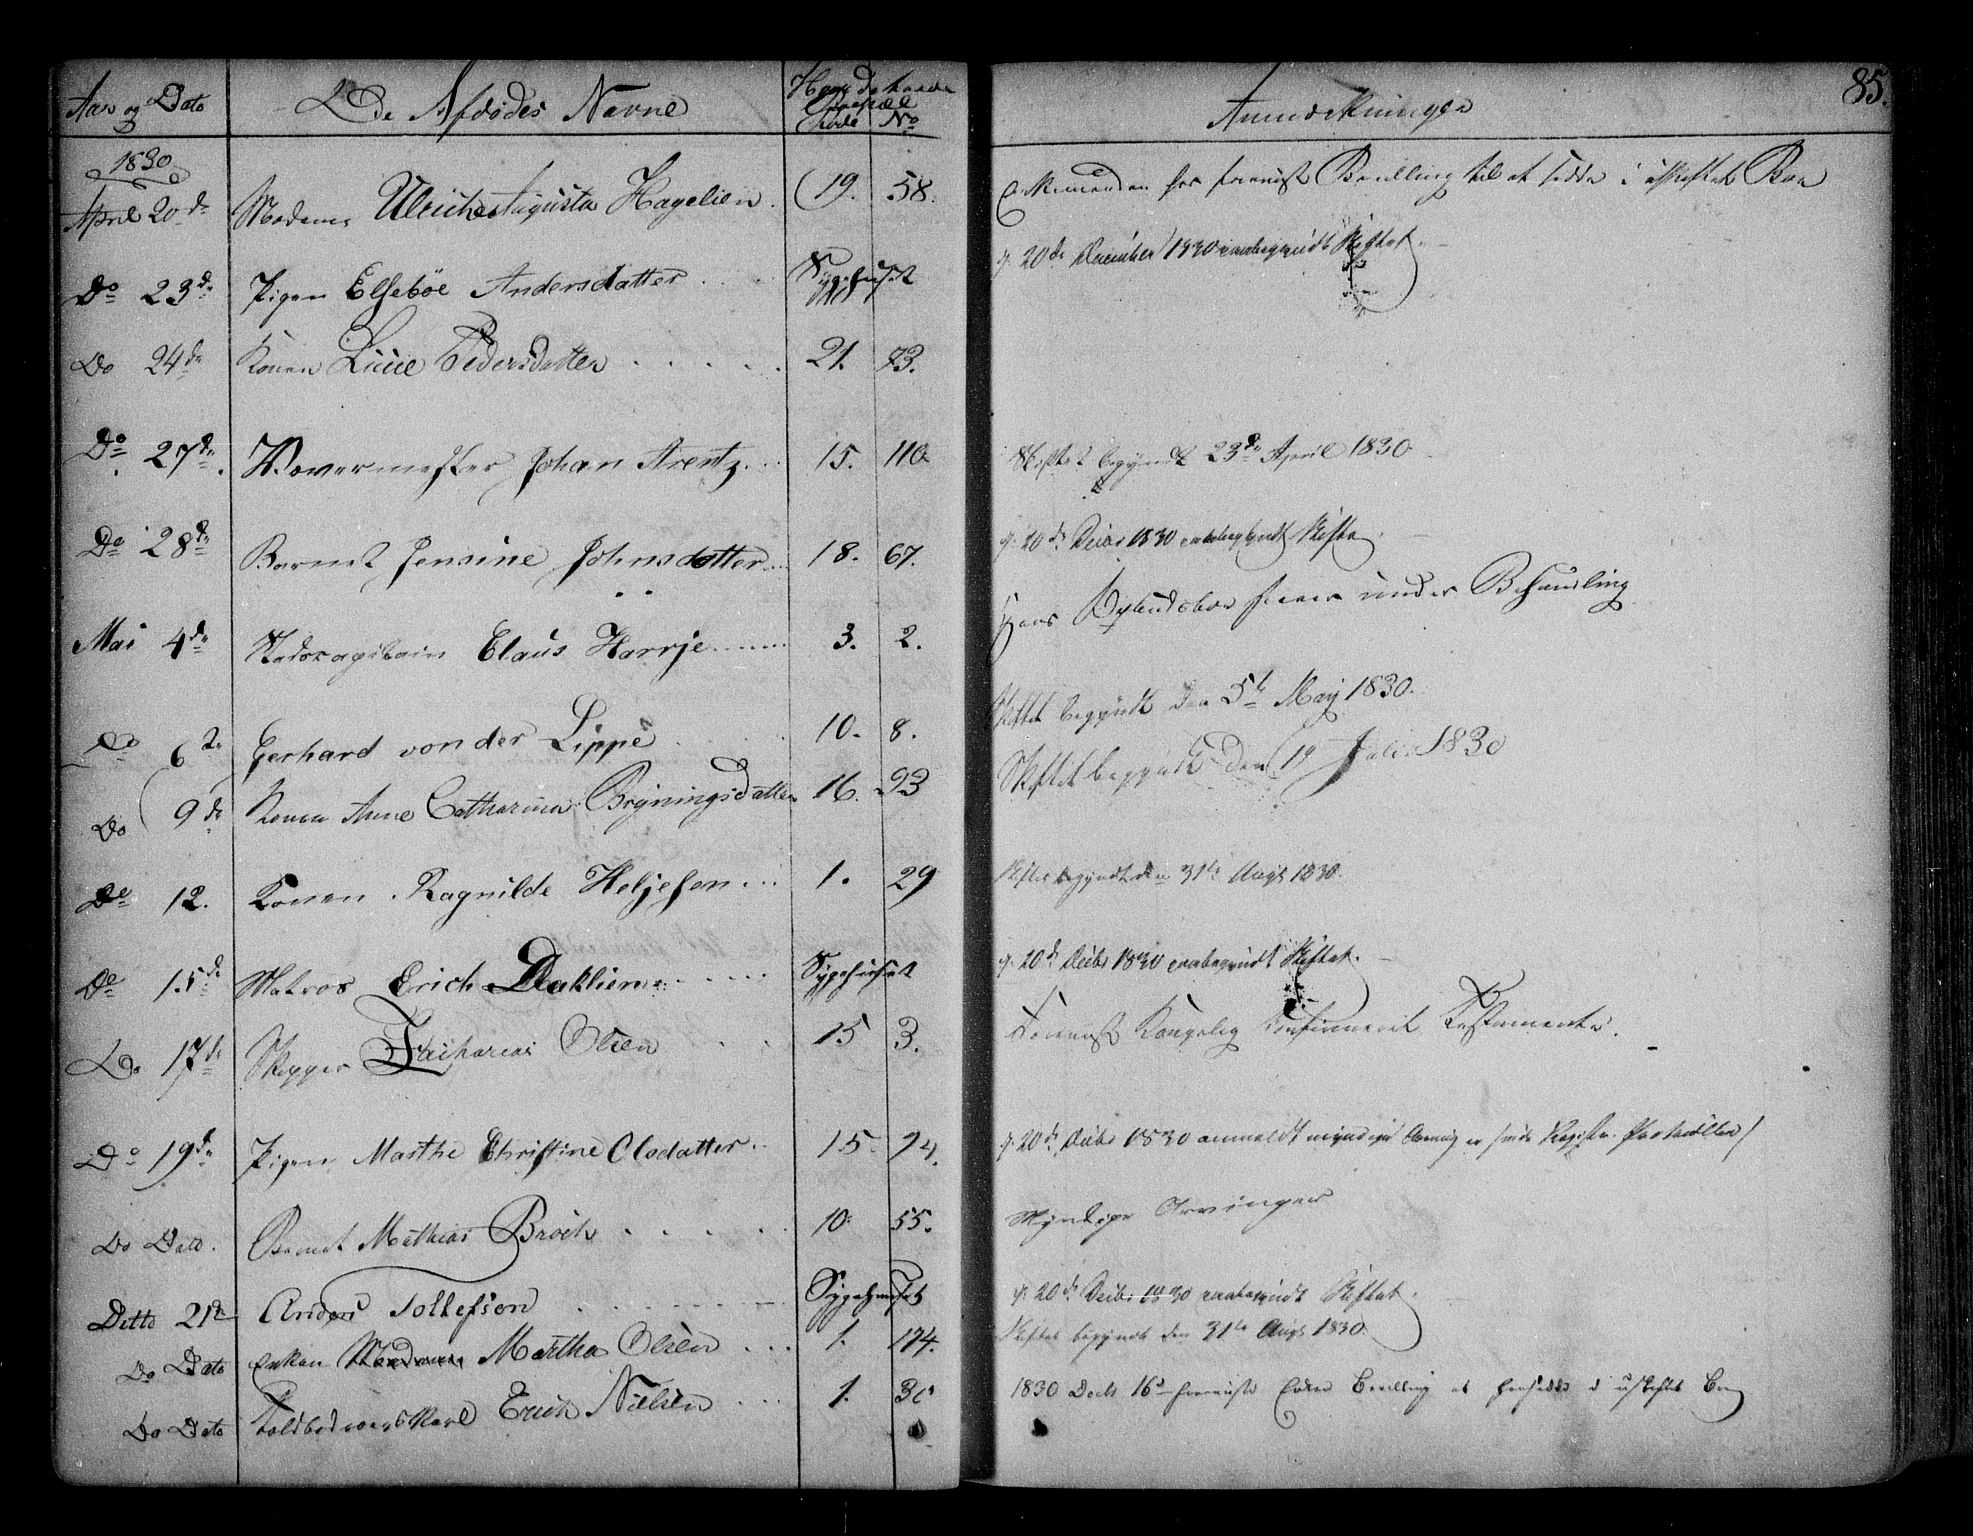 85.
Aar og Dato De Afdødes Navne Rode No Anmærkninger
1830
April 20de Madame Ulriche Augusta Hagelien. 19. 58. Enkemanden har foreviist Bevilling til at sidde i uskiftet Boe
20de December 1830 Skiftet.
Do 23de Pigen Elseböe Andersdatter Sygehuset
Do 24de Konen Lucie Pedersdatter 21. 73.
Do 27de Johan Arentz 15. 110 Skiftet begyndt 23de April 1830
Do 28de Barnet Jensine Johnsdatter 18. 67. 20de Decbr 1830 Skifte
Mai 4de Stadscapitain Claus Harrje 3. 2. Hans under Behandling
Do 6te Gerhard von der Lippe 10. 8. Skiftet begyndt den 5te May 1830.
Do 9de Konen Anne Catharina Bryningsdatter 16. 93 Skiftet begyndt den 19 1830
Do 12. Konen Ragnilde Heljesen 1. 29 Skiftet begyndt den 31te Augt 1830.
Do 15de Matros Erich Dahlien Sygehuset 20de Decbr 1830 Skiftet.
Do 17de Skipper Zacharias Olsen 15 3. Foreviist Kongelig Confirmerit Testamente.
Do 19de Pigen Marthe Christine Olsdatter 15. 94. 20de Decbr 1830 anmeldt myndige Protocollen
Do Dato. Berent Mathias Broch 10. 55. Myndige Arvinger
Ditto 21de Anders Tollefsen Sygehuset 20de Decbr 1830 Skiftet.
Do Dato Enken Madame Martha Olsen 1. 174. Skiftet begyndt den 31te Augt 1830.
Do Dato Erich Nielsen 1. 30 1830 Decbr 16de foreviiste Enken Bevilling at hensidde i uskiftet Boe